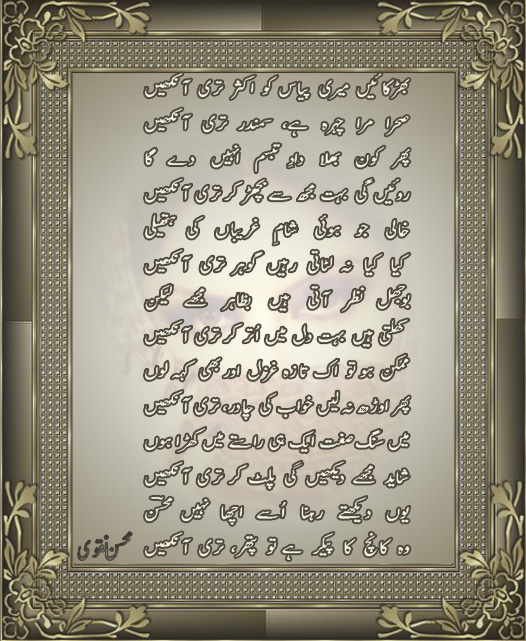 بھڑکائیں میری پیاس کو اکثر تری آنکھیں
صحرا مرا چہرہ ہے، سمندر تری آنکھیں
پھر کون بھلا دادِ تبسم اُنہیں دے گا
روئیں گی بہت مجھ سے بچھڑ کر تری آنکھیں
خالی جو ہوئی شامِ غریباں کی ہتھیلی
کیا کیا نہ لٹاتی رہیں گوہر تری آنکھیں
بوجھل نظر آتی ہیں بظاہر مجھے لیکن
کھلتی ہیں بہت دل میں اُتر کر تری آنکھیں
ممکن ہو تو اک تازہ غزل اور بھی کہہ لوں
پھر اوڑھ نہ لیں خواب کی چادر، تری آنکھیں
میں سنگ صفت ایک ہی راستے میں کھڑا ہوں
شاید مجھے دیکھیں گی پلٹ کر تری آنکھیں
یوں دیکھتے رہنا اُسے اچھا نہیں محسنؔ
وہ کانچ کا پیکر ہے تو پتھر، تری آنکھیں
محسن نقوی